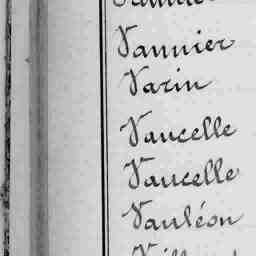 Vannier
Varin
Vaucelle
Vaucelle
Vauléon